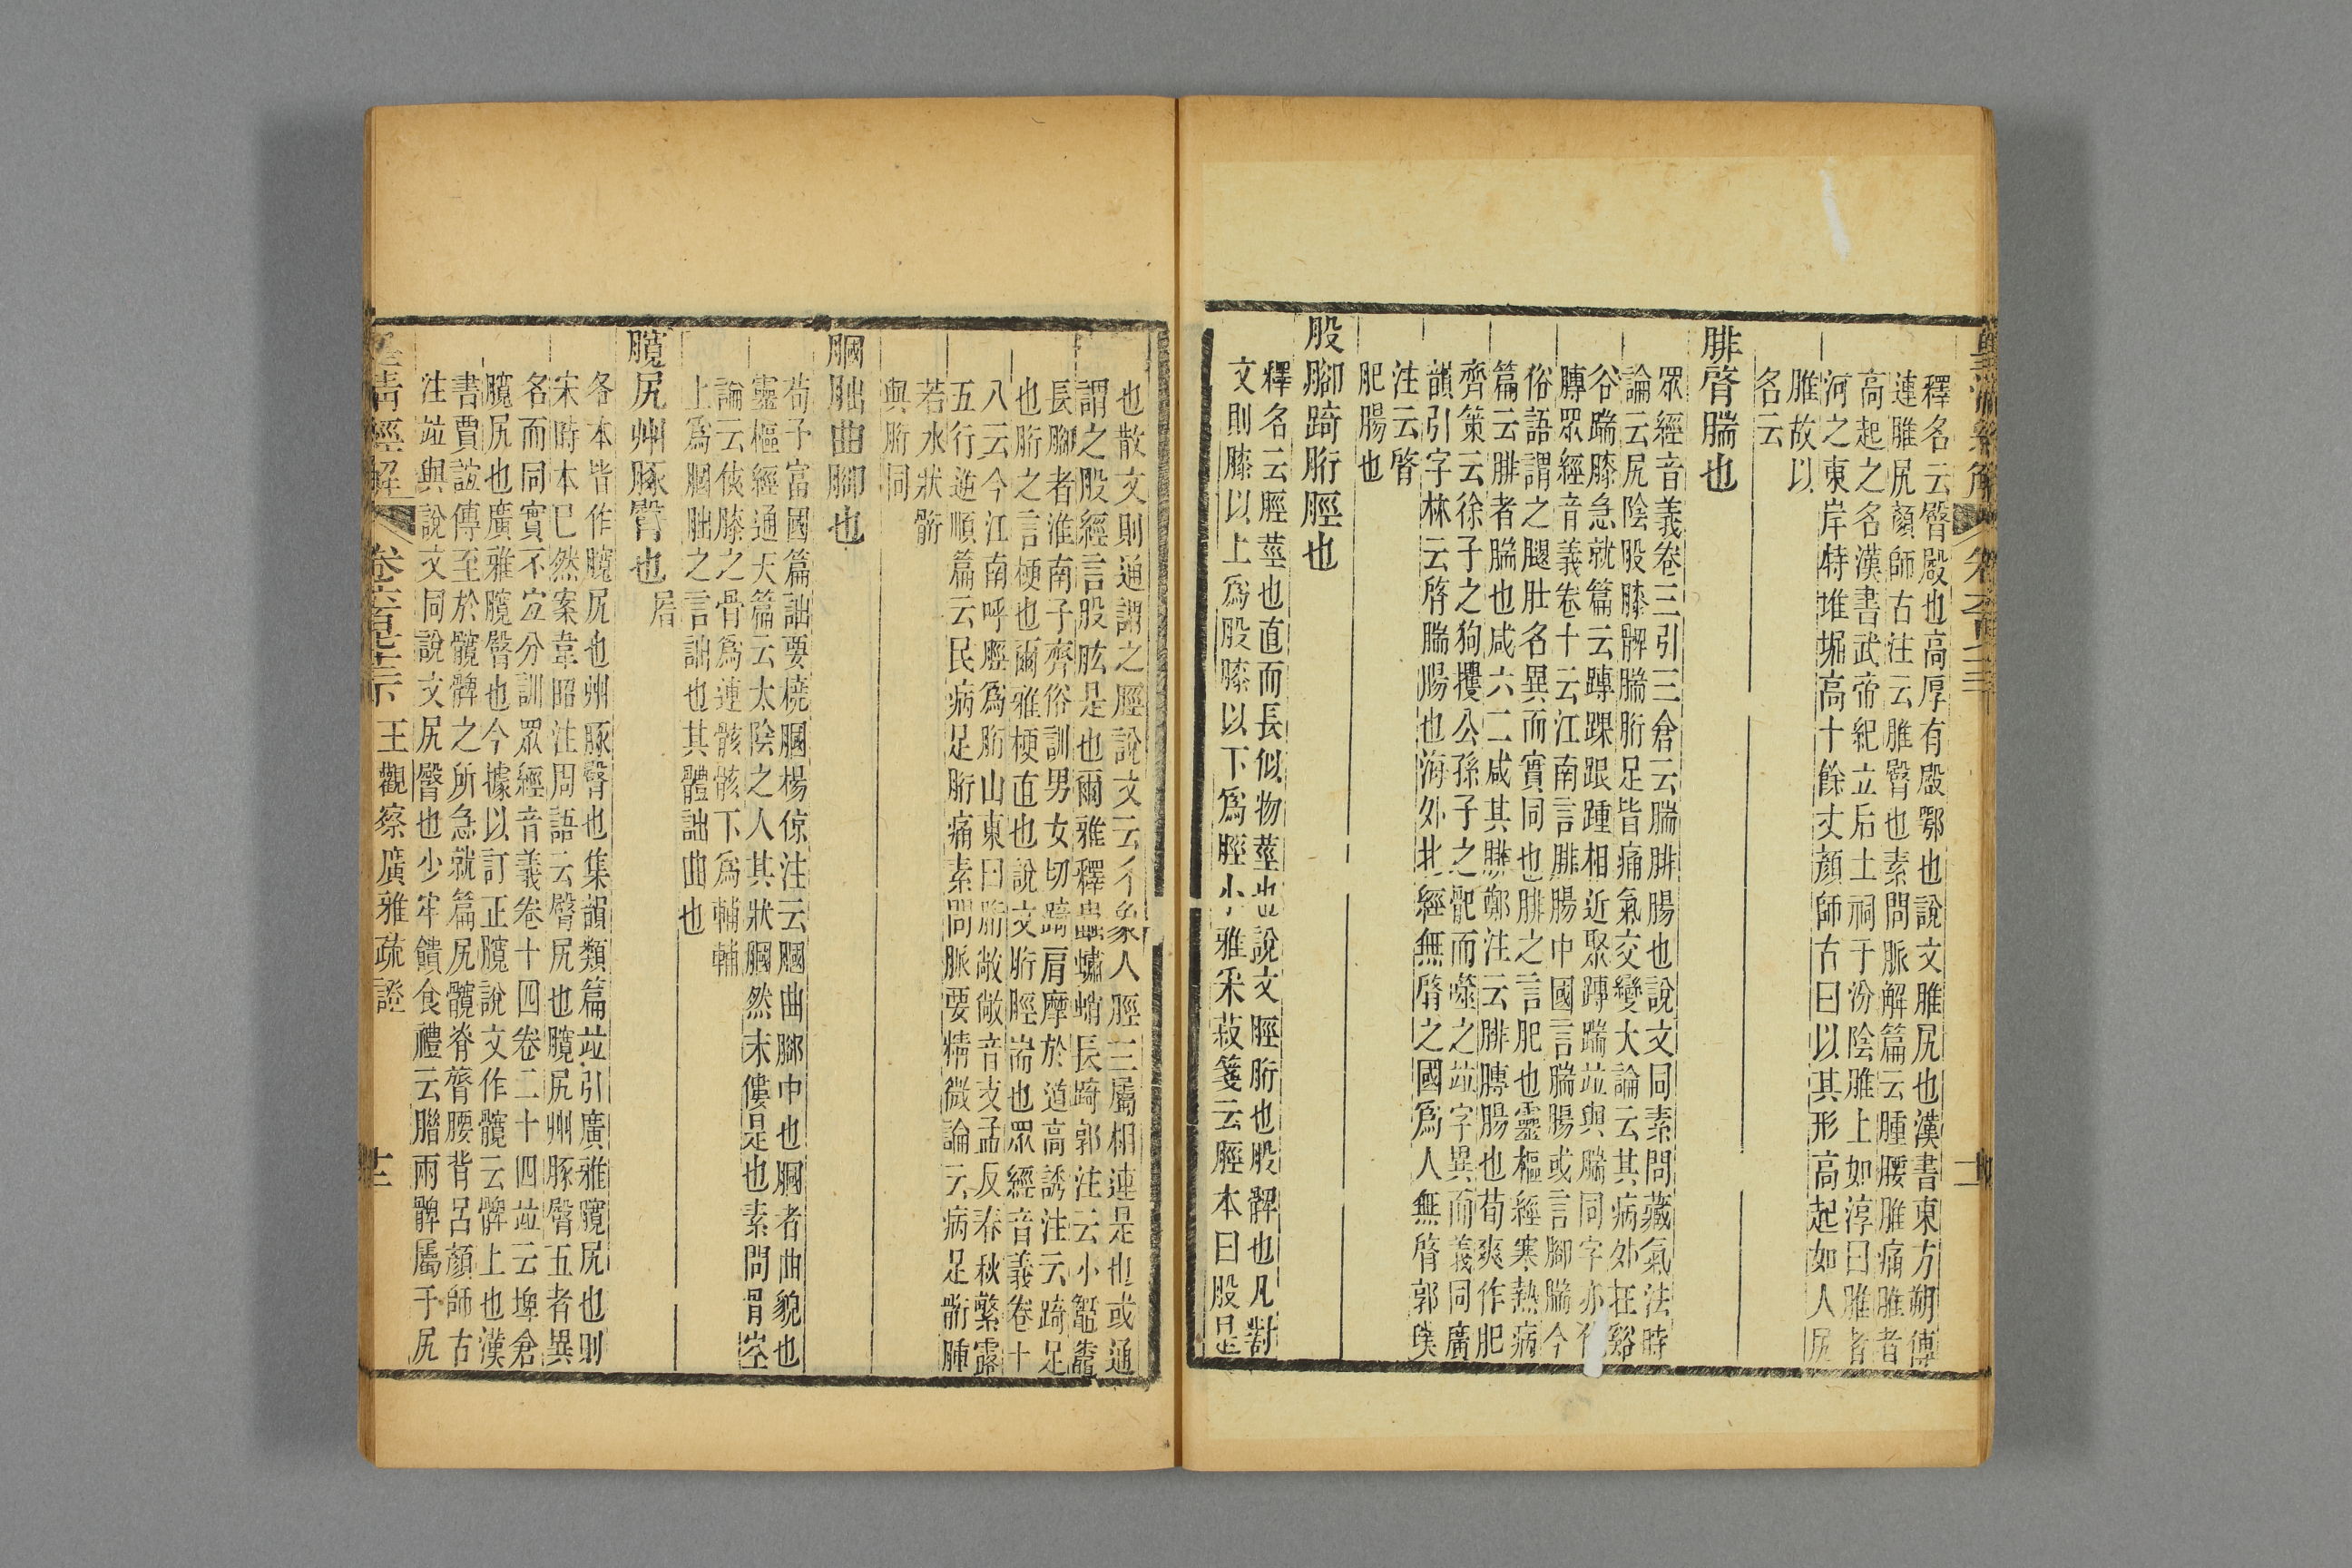 釋名云臀殿也高厚有殿鄂也說文脽尻也漢書東方朔傳
連脽尻顏師古注云脽臀也素問脈解篇云腫腰脽痛脽者
高起之名漢書武帝紀立后土祠于汾陰脽上如淳曰脽者
河之東岸特堆堀高十餘丈顏師古曰以其形高起如人尻
脽故以
名云
腓䏿腨也
眾經音義卷三引三倉云腨腓腸也說文同素問藏氣法時
論云尻陰股膝髀腨胻足皆痛氣交變大論云其病外在谿
谷踹膝急就篇云踹踝跟踵相近聚踹竝與腨同字亦作
膞眾經音義卷十云江南言腓腸中國言腨腸或言腳腨今
俗語謂之腿肚名異而實同也腓之言肥也靈樞經寒熱病
篇云腓者腨也咸六二咸其腓鄭注云腓膞腸也荀爽作肥
齊策云徐子之狗攫公孫子之腓而噬之竝字異而義同廣
韻引字林云䏿腨腸也海外北經無䏿之國爲人無䏿郭璞
注云䏿
肥腸也
股腳踦胻脛也
釋名云脛莖也直而長似物莖也說文脛胻也股髀也凡對
文則膝以上爲股膝以下爲脛小雅采菽箋云脛本曰股是
也散文則通謂之脛說文云彳象人脛三屬相連是也或通
謂之股經言股肱是也爾雅釋蟲蠨蛸長踦郭注云小鼅鼄
長腳者淮南子齊俗訓男女切踦肩摩於道高誘注云踦足
也胻之言梗也爾雅梗直也說文胻脛耑也眾經音義卷十
八云今江南呼脛爲胻山東曰胻敞敞音支孟反春秋繁露
五行逆順篇云民病足胻痛素問脈要精微論云病足䯒腫
若水狀䯒
與胻同
膕朏曲腳也
荀子富國篇詘要橈膕楊倞注云膕曲腳中也膕者曲貌也
靈樞經通天篇云太陰之人其狀膕然未僂是也素問骨空
論云俠膝之骨爲連骸骸下爲輔輔
上爲膕朏之言詘也其體詘曲也
臗尻州豚臀也㞒
各本皆作臗尻也州豚臀也集韻類篇竝引廣雅臗尻也則
宋時本已然案韋昭注周語云臀尻也臗尻州豚臀五者異
名而同實不宜分訓眾經音義卷十四卷二十四竝云埤倉
臗尻也廣雅臗臀也今據以訂正臗說文作髖云髀上也漢
書賈誼傳至於髖髀之所急就篇尻髖脊膂腰背呂顏師古
注竝與說文同說文尻䐁也少牢饋食禮云腊兩髀屬于尻
皇清經解 卷六百七十三下 王觀察廣雅疏證